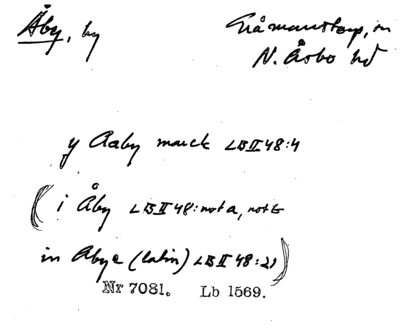 Åby, by
Gråmanstorp, sn
N. Åsbo hd
y Aaby marck LB II 48:4
(i Åby LB II 48: not a, not b
in Abye (latin) LB II 48:21)
Nr 7081. Lb 1569.